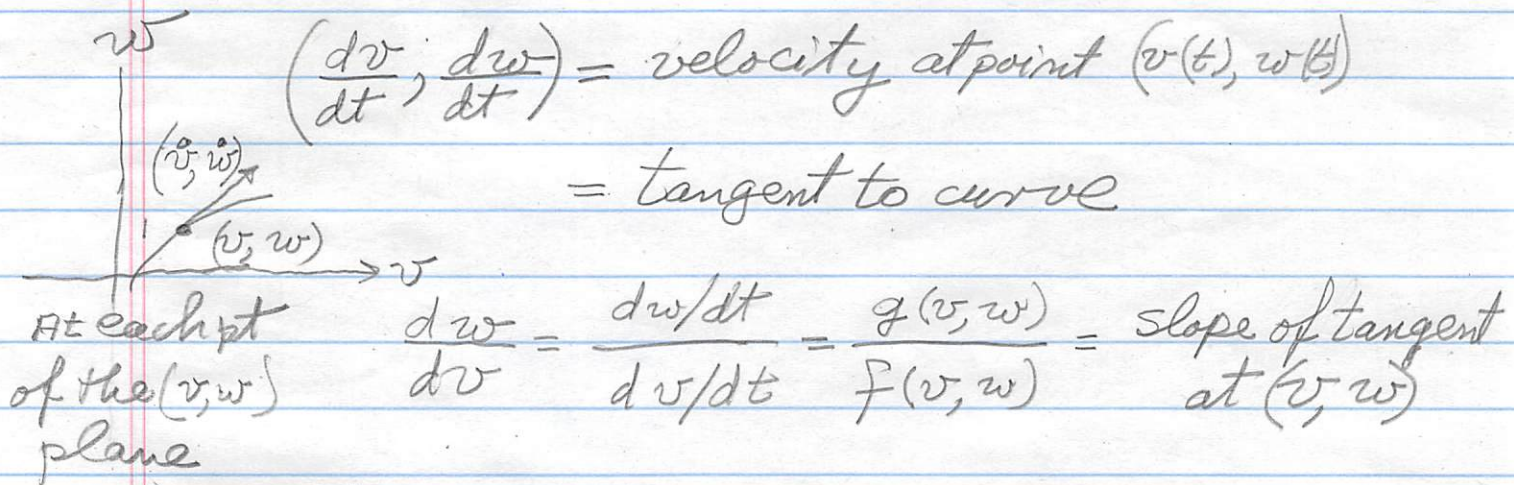 w
(dv/dt, dw/dt) = velocity at point (v(t), w(t))
(v̊, ẘ)
= tangent to curve
(v, w)
v
At each pt of the (v,w) plane
dw/dv = (dw/dt)/(dv/dt) = g(v,w)/f(v,w) = slope of tangent at (v, w)